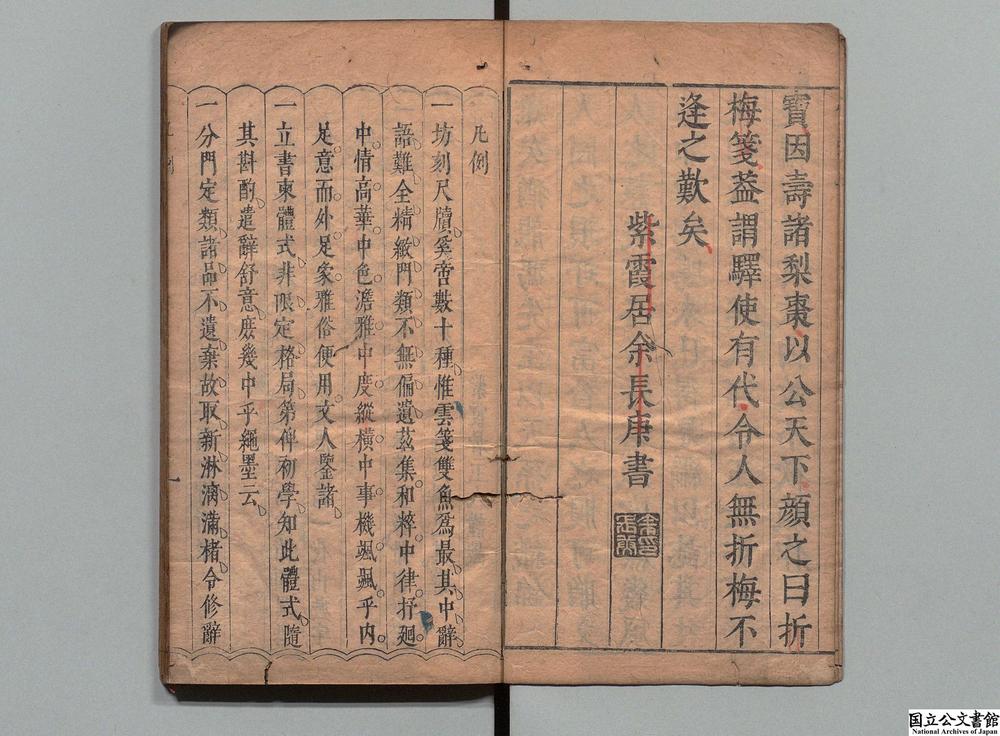 寶因壽諸梨棗以公天下顔之曰折
梅箋葢謂驛使有代令人無折梅不
逢之歎矣
紫霞居余長庚書
凡例
一坊刻尺牘奚啻數十種惟雲箋雙魚爲最其中辭
語難全精緻門類不無偏遺茲集和粹中律抒廻
中情高華中色澹雅中度縱橫中事機颯颯乎内
足意而外足象雅俗便用文人鑒諸
一立書柬體式非限定格局第俾初學知此體式隨
其斟酌遣辭舒意庶幾中乎繩墨云
一分門定類諸品不遺棄故取新淋漓滿楮令修辭
国立公文書館
National Archives of Japan